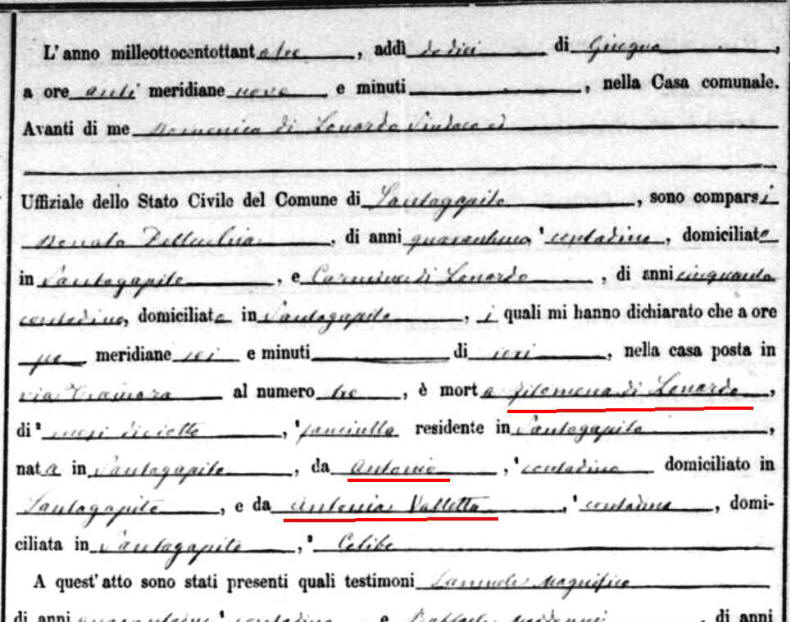 L'anno milleottocentottantatre, addì dodici di Giugno,
a ore anti meridiane nove e minuti , nella Casa comunale.
Avanti di me Domenico di Lonardo Sindaco ed
Uffiziale dello Stato Civile del Comune di Santagapito, sono comparsi
Donato Dellaelia, di anni quarantuno, contadino, domiciliato
in Santagapito, e Carmine di Lonardo, di anni cinquanta
contadino, domiciliato in Santagapito, i quali mi hanno dichiarato che a ore
po meridiane sei e minuti di ieri, nella casa posta in
via al numero tre, è morta Filomena di Lonardo,
di mesi diciotto, fanciulla residente in Santagapito,
nata in Santagapito, da Antonio, contadino domiciliato in
Santagapito, e da Antonia Valletta, contadina, domi-
ciliata in Santagapito, Celibe
A quest'atto sono stati presenti quali testimoni Samuele Magnifico
di anni contadino e Raffaele , di anni